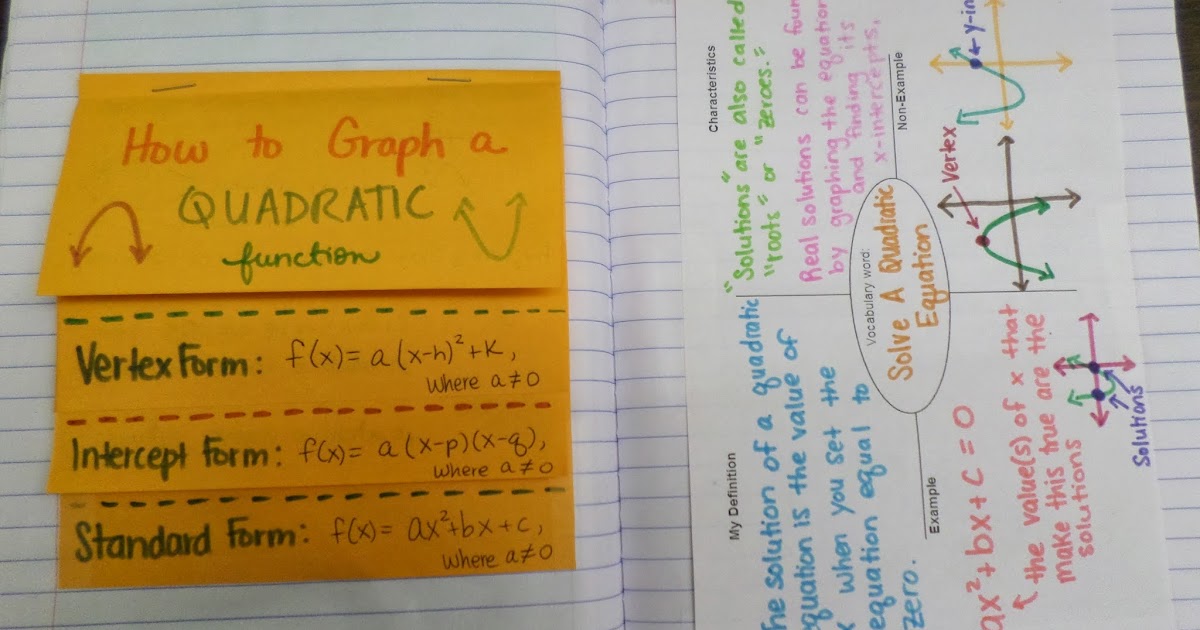 How to Graph a
QUADRATIC
function
Vertex Form: f(x) = a(x-h)²+K,
where a≠0
Intercept Form: f(x) = a(x-p)(x-q),
where a≠0
Standard Form: f(x) = ax²+bx+c,
where a≠0
My Definition
The solution of a quadratic
equation is the value of
x when you set the
equation equal to
zero.
Characteristics
"Solutions" are also called
"roots" or "zeroes."
Real solutions can be found
by graphing the equation
and finding its
x-intercepts.
Vocabulary word:
Solve A Quadratic
Equation
Example
ax²+bx+c=0
the value(s) of x that
make this true are the
solutions
Solutions
Non-Example
Vertex